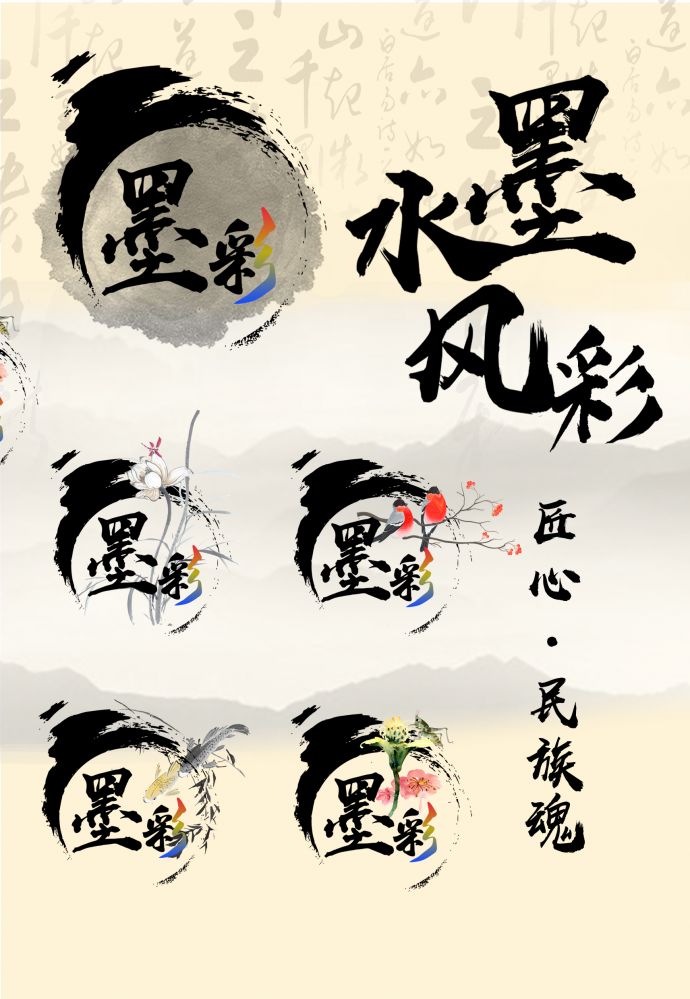 墨彩
水墨
风彩
墨彩
墨彩
匠心·民族魂
墨彩
墨彩